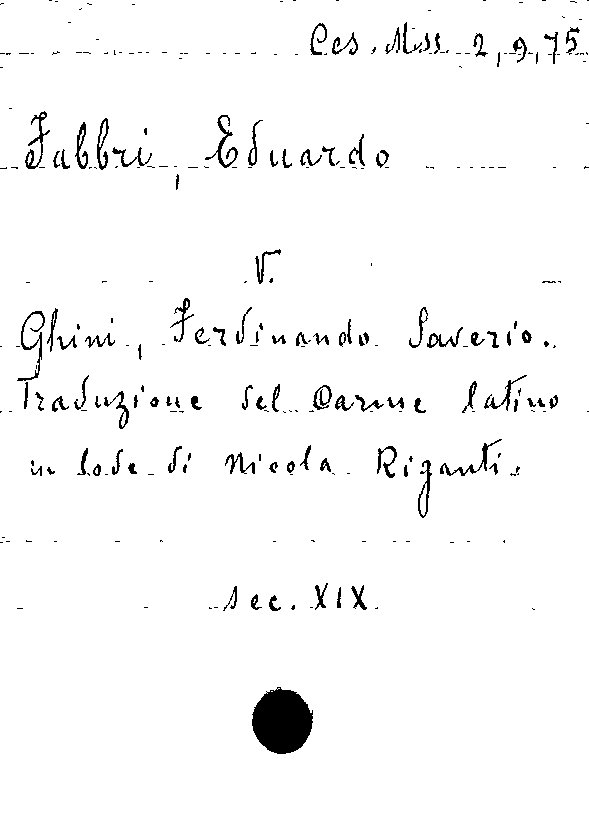 Ces. Mss. 2, 9, 75
Fabbri, Eduardo
V.
Ghini, Ferdinando Saverio.
Traduzione del Carme latino
in lode di Nicola Riganti.
sec. XIX